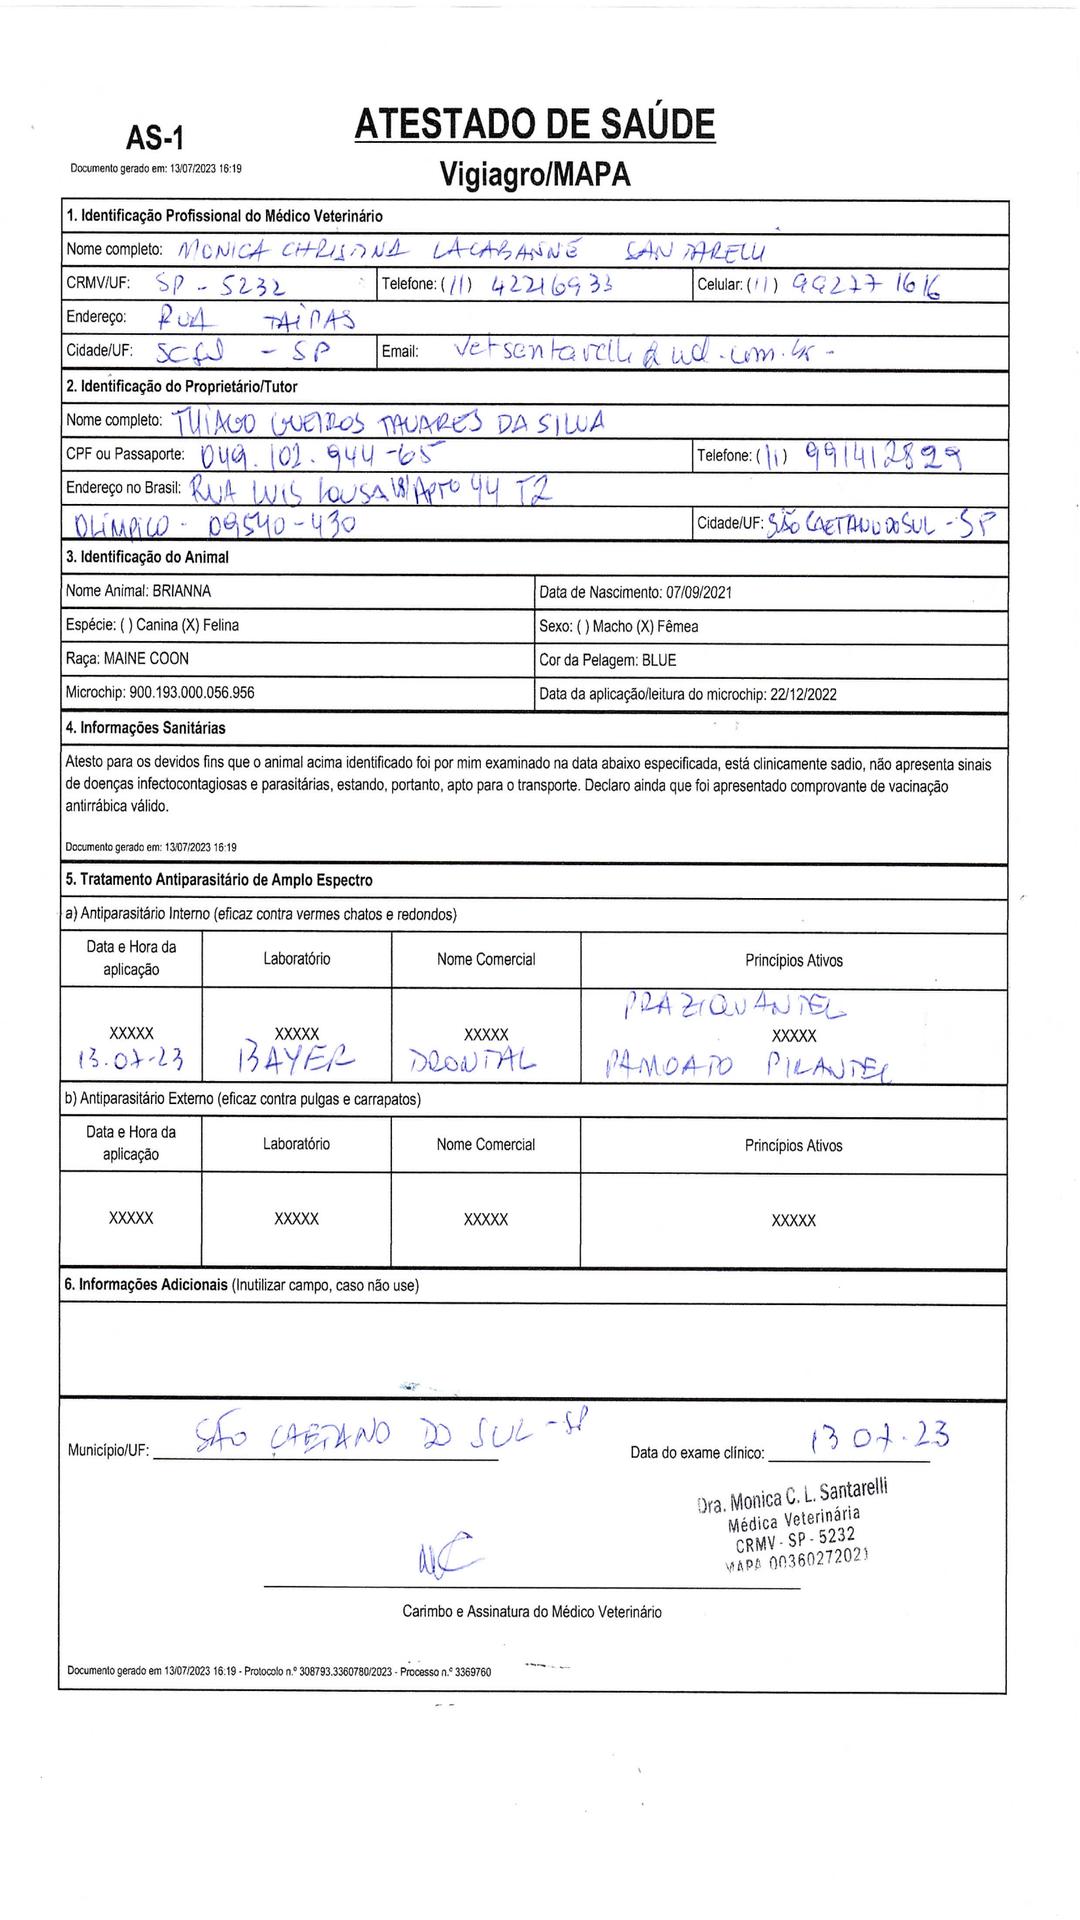 AS-1
Documento gerado em: 13/07/2023 16:19
ATESTADO DE SAÚDE
Vigiagro/MAPA
1. Identificação Profissional do Médico Veterinário
Nome completo: MONICA CHRISTINA LACABANNE SANTARELLI
CRMV/UF: SP - 5232 Telefone: (11) 42216933 Celular: (11) 99277 1616
Endereço: RUA TAIPAS
Cidade/UF: SCSul - SP Email:
2. Identificação do Proprietário/Tutor
Nome completo: THIAGO QUEIROS TAVARES DA SILVA
CPF ou Passaporte: 049.102.944-65 Telefone: (11) 991412829
Endereço no Brasil: RUA LUIS LOUSA APTO 44 T2
OLÍMPICO - 09540-430 Cidade/UF: SÃO CAETANO DO SUL - SP
3. Identificação do Animal
Nome Animal: BRIANNA Data de Nascimento: 07/09/2021
Espécie: ( ) Canina (X) Felina Sexo: ( ) Macho (X) Fêmea
Raça: MAINE COON Cor da Pelagem: BLUE
Microchip: 900.193.000.056.956 Data da aplicação/leitura do microchip: 22/12/2022
4. Informações Sanitárias
Atesto para os devidos fins que o animal acima identificado foi por mim examinado na data abaixo especificada, está clinicamente sadio, não apresenta sinais
de doenças infectocontagiosas e parasitárias, estando, portanto, apto para o transporte. Declaro ainda que foi apresentado comprovante de vacinação
antirrábica válido.
Documento gerado em: 13/07/2023 16:19
5. Tratamento Antiparasitário de Amplo Espectro
a) Antiparasitário Interno (eficaz contra vermes chatos e redondos)
Data e Hora da
aplicação Laboratório Nome Comercial Princípios Ativos
PRAZIQUANTEL
XXXXX XXXXX XXXXX XXXXX
13.07-23 BAYER DRONTAL PAMOATO PIRANTEL
b) Antiparasitário Externo (eficaz contra pulgas e carrapatos)
Data e Hora da
aplicação Laboratório Nome Comercial Princípios Ativos
XXXXX XXXXX XXXXX XXXXX
6. Informações Adicionais (Inutilizar campo, caso não use)
Município/UF: SÃO CAETANO DO SUL - SP Data do exame clínico: 13 07.23
Dra. Monica C. L. Santarelli
Médica Veterinária
CRMV - SP - 5232
MAPA 00360272021
Carimbo e Assinatura do Médico Veterinário
Documento gerado em 13/07/2023 16:19 - Protocolo n.º 308793.3360780/2023 - Processo n.º 3369760